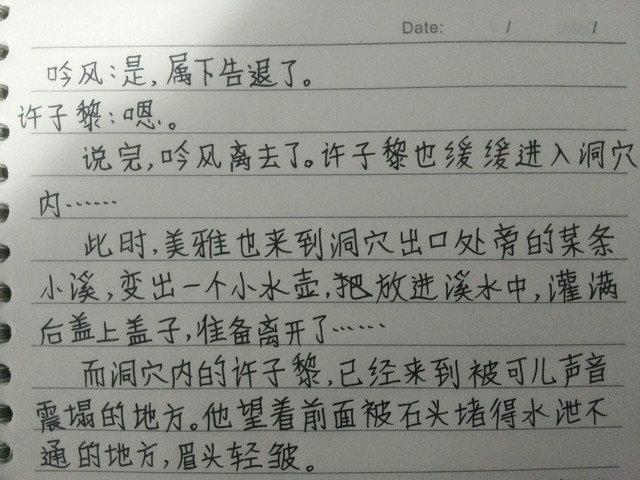 Date: / /
吟风:是,属下告退了。
许子黎:嗯。
说完,吟风离去了。许子黎也缓缓进入洞穴
内……
此时,美雅也来到洞穴出口处旁的某条
小溪,变出一个小水壶,把放进溪水中,灌满
后盖上盖子,准备离开了……
而洞穴内的许子黎,已经来到被可儿声音
震塌的地方。他望着前面被石头堵得水泄不
通的地方,眉头轻皱。